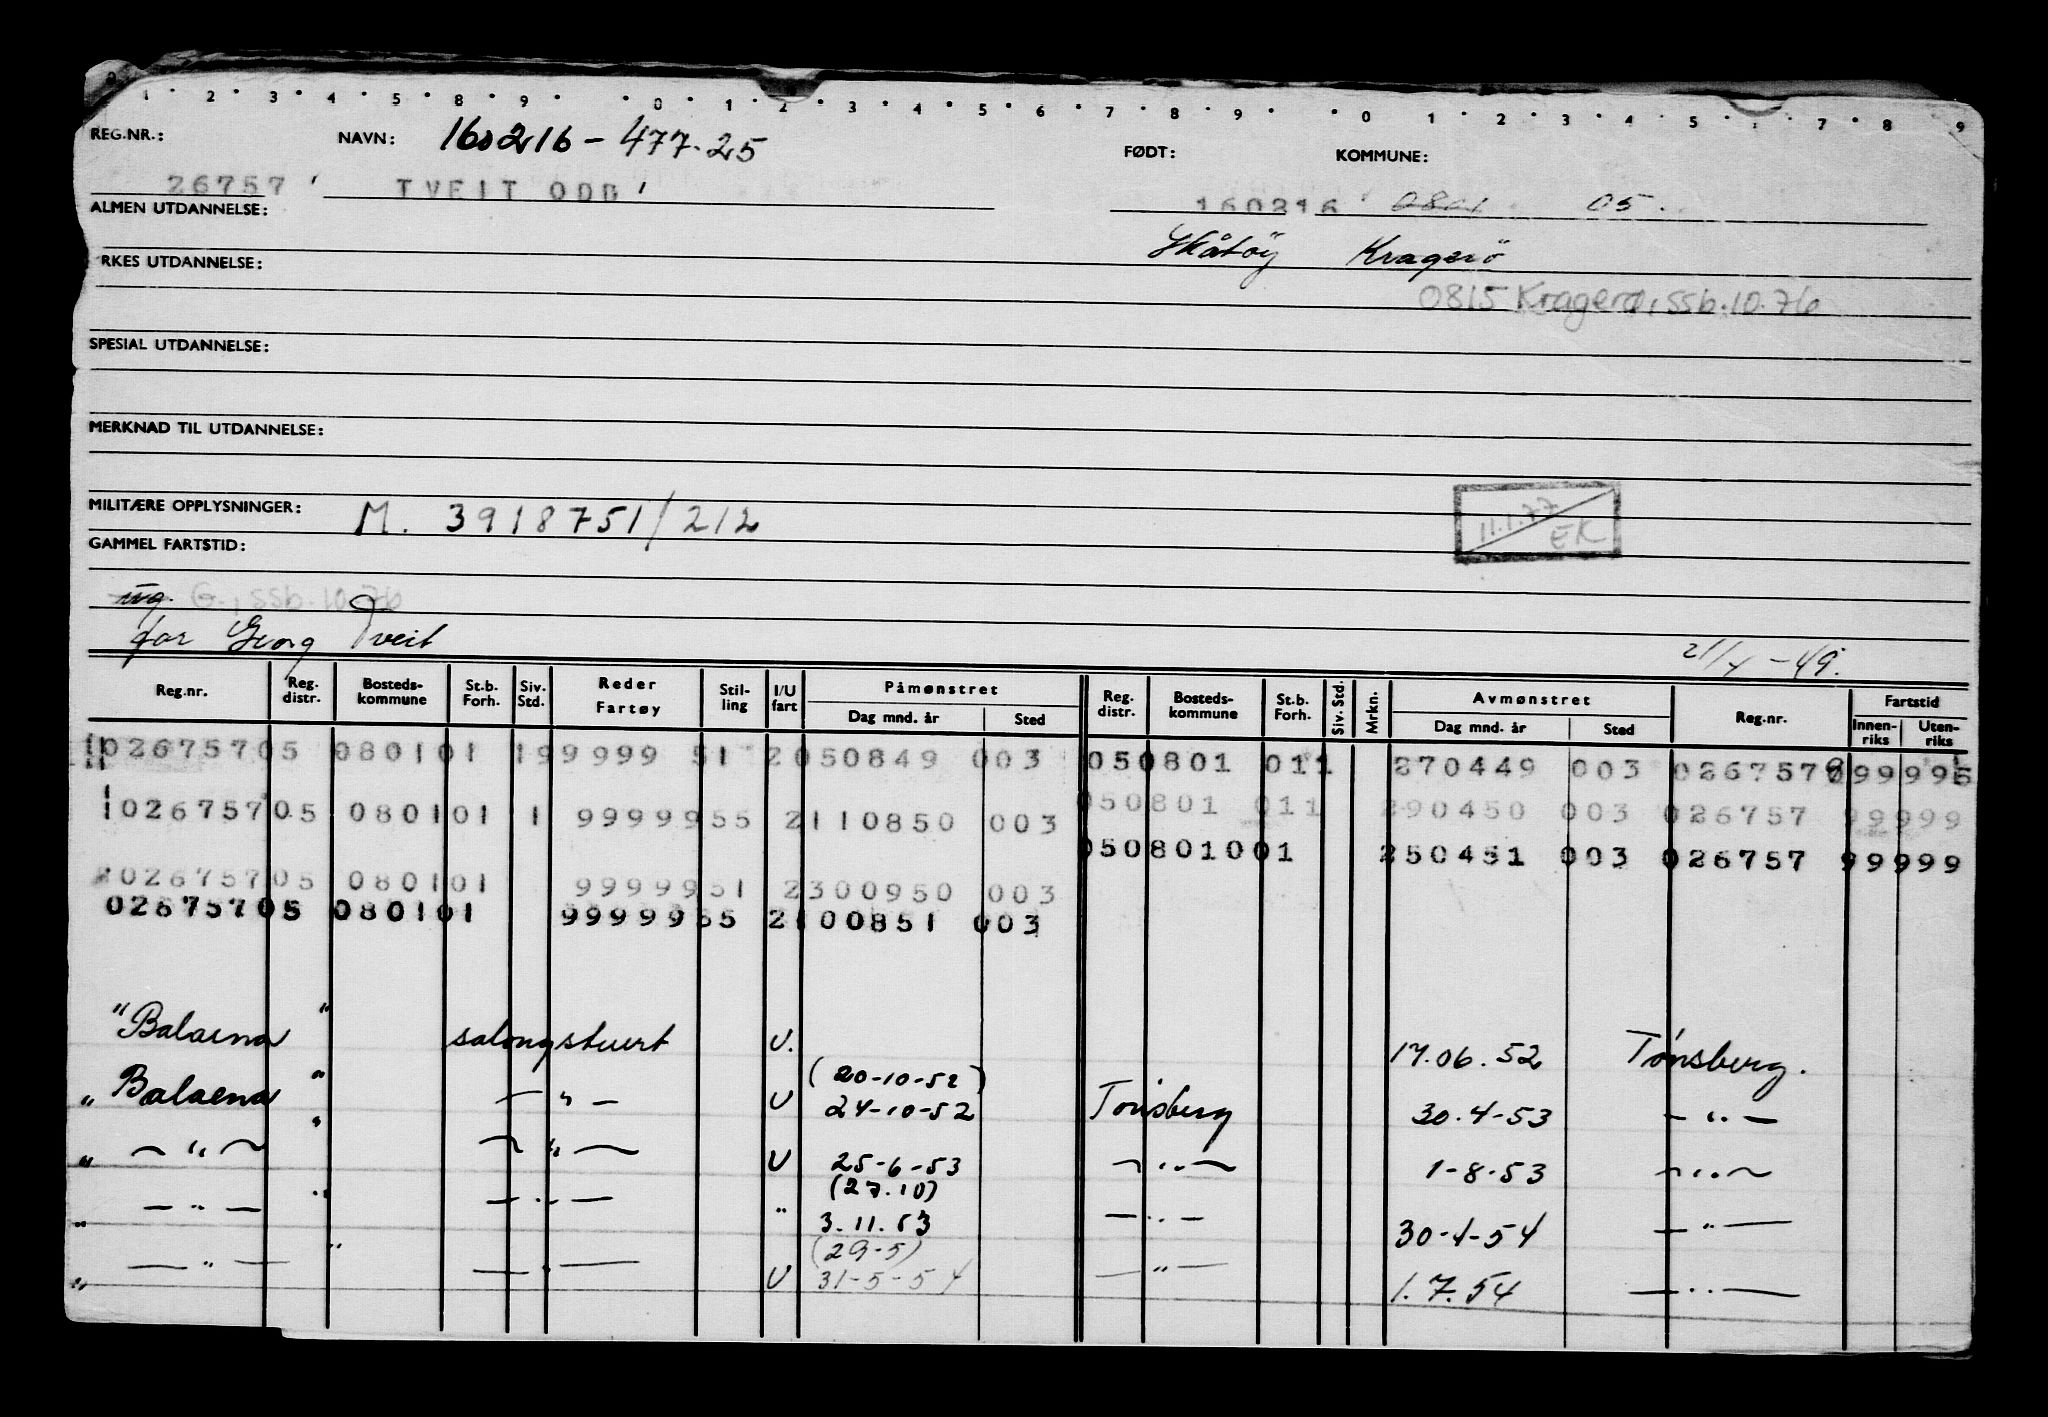 1 2 3 4 5 8 9 0 1 2 3 4 5 6 7 8 9 0 1 2 3 4 5 7 8 9
REG.NR.: NAVN: 160216-477.25 FØDT: KOMMUNE:
26757 TVEIT ODB 160216 0801 05.
ALMEN UTDANNELSE:
Skåtöy Kragerö
RKES UTDANNELSE:
0815 Kragerø, ssb.10.76
SPESIAL UTDANNELSE:
MERKNAD TIL UTDANNELSE:
MILITÆRE OPPLYSNINGER: M. 3918751/212
11.1.77 EK
GAMMEL FARTSTID:
ug. G., ssb.10.76
far Georg Tveit
21/4-49.
Reg.nr. Reg. distr. Bosteds-kommune St.b. Forh. Siv. Std. Reder Fartøy Stil-ling I/U fart Påmønstret Dag mnd. år Sted Reg. distr. Bosteds-kommune St.b. Forh. Siv. Std. Mrkn. Avmønstret Dag mnd. år Sted Reg.nr. Fartstid Innen-riks Uten-riks
02675705 080101 199999 51 2050849 003 050801 011 270449 003 026757 99995
102675705 080101 1 9999955 2110850 003 050801 011 290450 003 026757 99999
050801001 250451 003 026757 99999
202675705 080101 9999951 2300950 003
02675705 080101 9999955 2100851 003
"Balaena" salongstuert U. 17.06.52 Tønsberg.
(20-10-52)
"Balaena" — " — U 24-10-52 Tønsberg 30.4-53 — " —
" — " — " — " — U 25-6-53 — " — 1-8-53 — " —
(27.10)
" — " — " — " — " 3.11.53 — " — 30-4-54 — " —
(29-5)
" — " — " — " — U 31-5-54 — " — 1.7.54 — " —